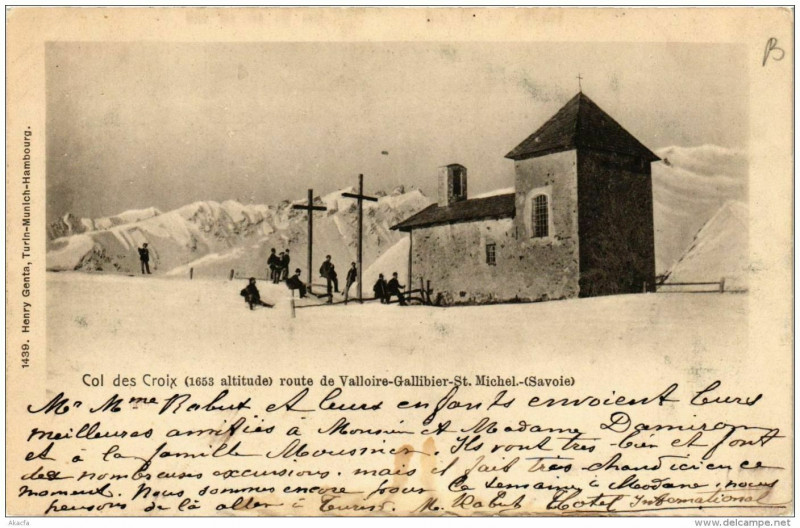 B
1439. Henry Genta, Turin-Munich-Hambourg.
Col des Croix (1653 altitude) route de Valloire-Gallibier-St. Michel.-(Savoie)
Mr Mme Rabut et leurs enfants envoient leurs
meilleures amitiés à Monsieur et Madame Damiron
et à la famille Ils vont très bien et font
des nombreuses excursions. mais il fait très chaud ici en ce
moment. Nous sommes encore pour la semaine à Modane, nous
pensons de là aller à Turin. M. Rabut Hotel International
© Akacfa
https://www.delcampe.net